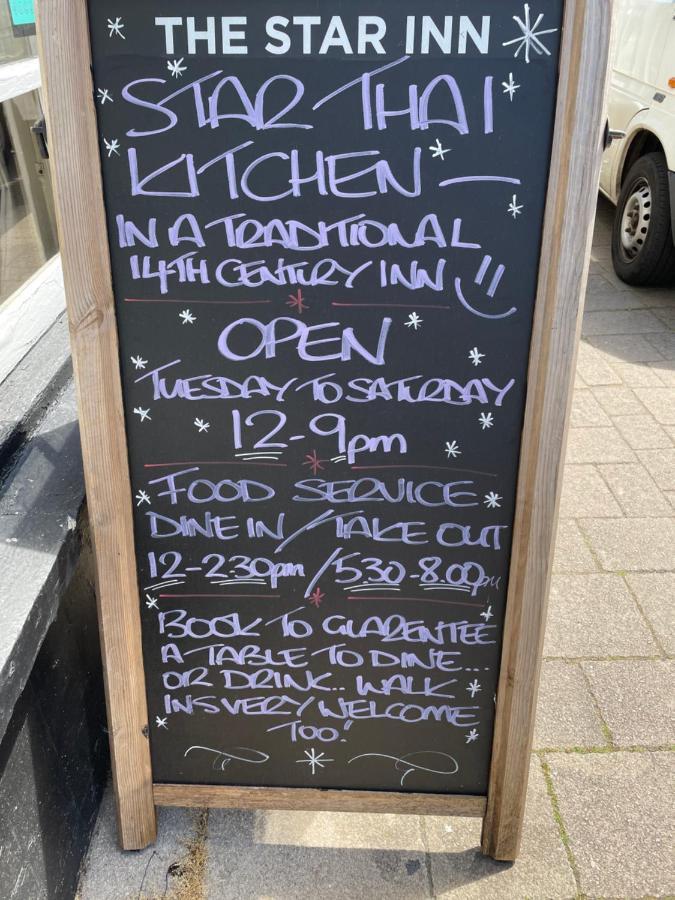 THE STAR INN
STAR THAI
KITCHEN —
IN A TRADITIONAL
14TH CENTURY INN
OPEN
TUESDAY TO SATURDAY
12-9pm
FOOD SERVICE
DINE IN / TAKE OUT
12-230pm / 5.30-8.00pm
BOOK TO GUARENTEE
A TABLE TO DINE...
OR DRINK.. WALK
INS VERY WELCOME
TOO!